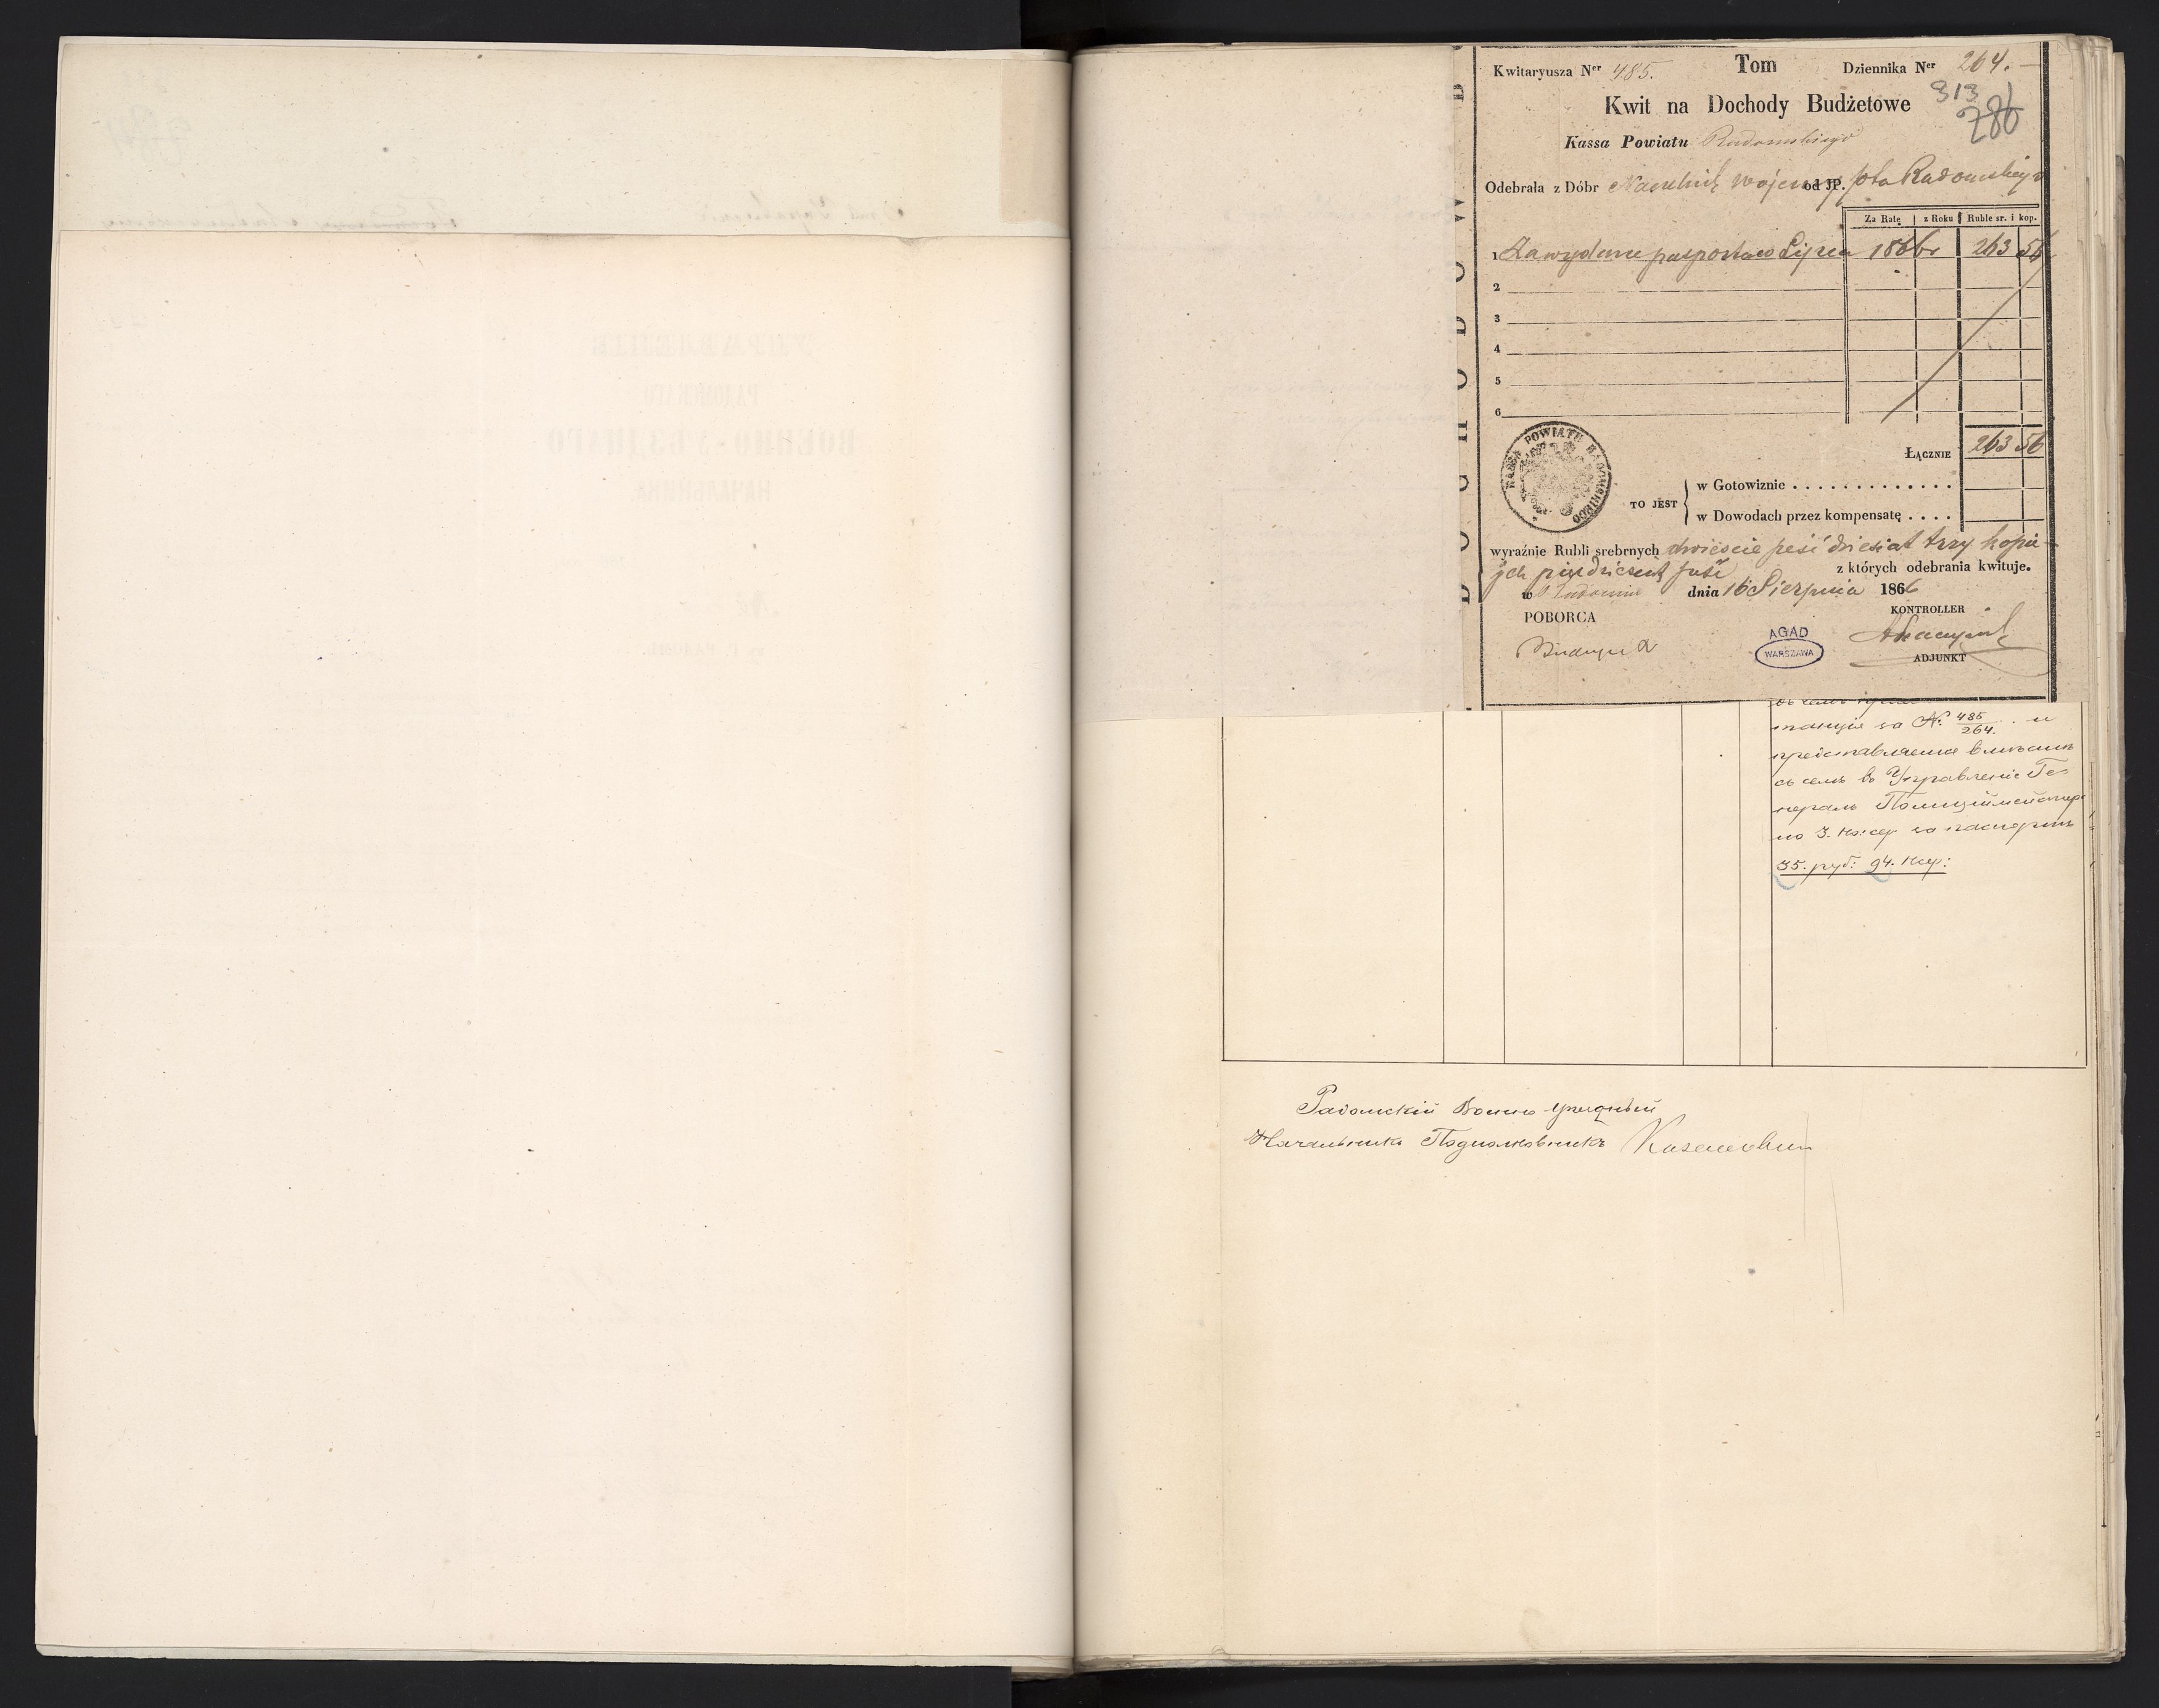 Kwitaryusza Ner 485. Tom Dziennika Ner 264.
313
286
Kwit na Dochody Budżetowe
Kassa Powiatu Radomskiego
Odebrała z Dóbr Naczelnik wojenny od JP. pta Radomskiego
Za Ratę z Roku Ruble sr. i kop.
1 Za wydane pasporta w Lipcu 1866 r 263 56
2
3
4
5
6
KASSA POWIATU RADOMSKIEGO
ŁĄCZNIE 263 56
TO JEST
w Gotowiznie . . . . . . . . . . . . .
w Dowodach przez kompensatę . . . .
wyraźnie Rubli srebrnych dwieście sześćdziesiat trzy kopie-
jek pięćdziesiąt sześć z których odebrania kwituje.
w Radomiu dnia 16 Sierpnia 1866
POBORCA KONTROLLER
AGAD
WARSZAWA
ADJUNKT
DOCHODOW
танція за №. 485/264. и
представляется вместѣ
съ семъ въ Управленіе Ге-
нералъ Полиціймейстера
по 3. коп: сер. за паспортъ
35. руб: 94. коп:
Радомскій Военно-уѣздный
Начальникъ Подполковникъ
УПРАВЛЕНІЕ
РАДОМСКАГО
ВОЕННО-УѢЗДНАГО
НАЧАЛЬНИКА